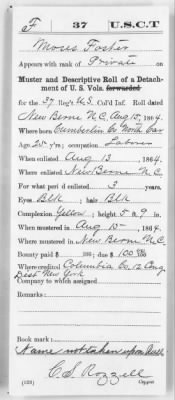 F 37 U.S.C.T
Moses Foster
Appears with rank of Private on
Muster and Descriptive Roll of a Detach-
ment of U. S. Vols. forwarded
for the 37 Reg't U.S. Col'd Inf. Roll dated
New Berne N.C. Aug 15, 1864.
Where born Cumberlin Co North Car
Age 25 y'rs; occupation Laborer
When enlisted Aug 13, 1864.
Where enlisted New Berne N.C.
For what period enlisted 3 years.
Eyes Blk; hair Blk
Complexion Yellow; height 5 ft. 9 in.
When mustered in Aug 15, 1864.
Where mustered in New Berne N.C.
Bounty paid $ 100; due $ 100
Where credited Columbia Co. 12 Cong
Dist New York
Company to which assigned
Remarks:
Book mark:
Name not taken upon
C S Rozzell
(133) Copyist